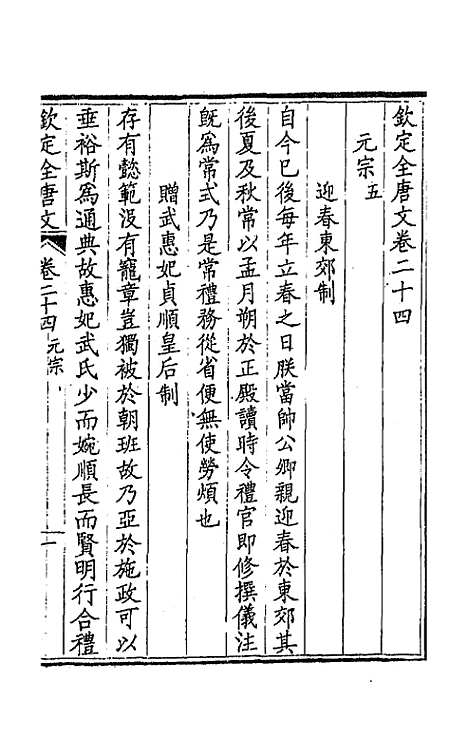 欽定全唐文卷二十四
元宗五
迎春東郊制
自今已後每年立春之日朕當帥公卿親迎春於東郊其
後夏及秋常以孟月朔於正殿讀時令禮官即修撰儀注
既爲常式乃是常禮務從省便無使勞煩也
贈武惠妃貞順皇后制
存有懿範沒有寵章豈獨被於朝班故乃亞於施政可以
垂裕斯爲通典故惠妃武氏少而婉順長而賢明行合禮
欽定全唐文 卷二十四 元宗 一